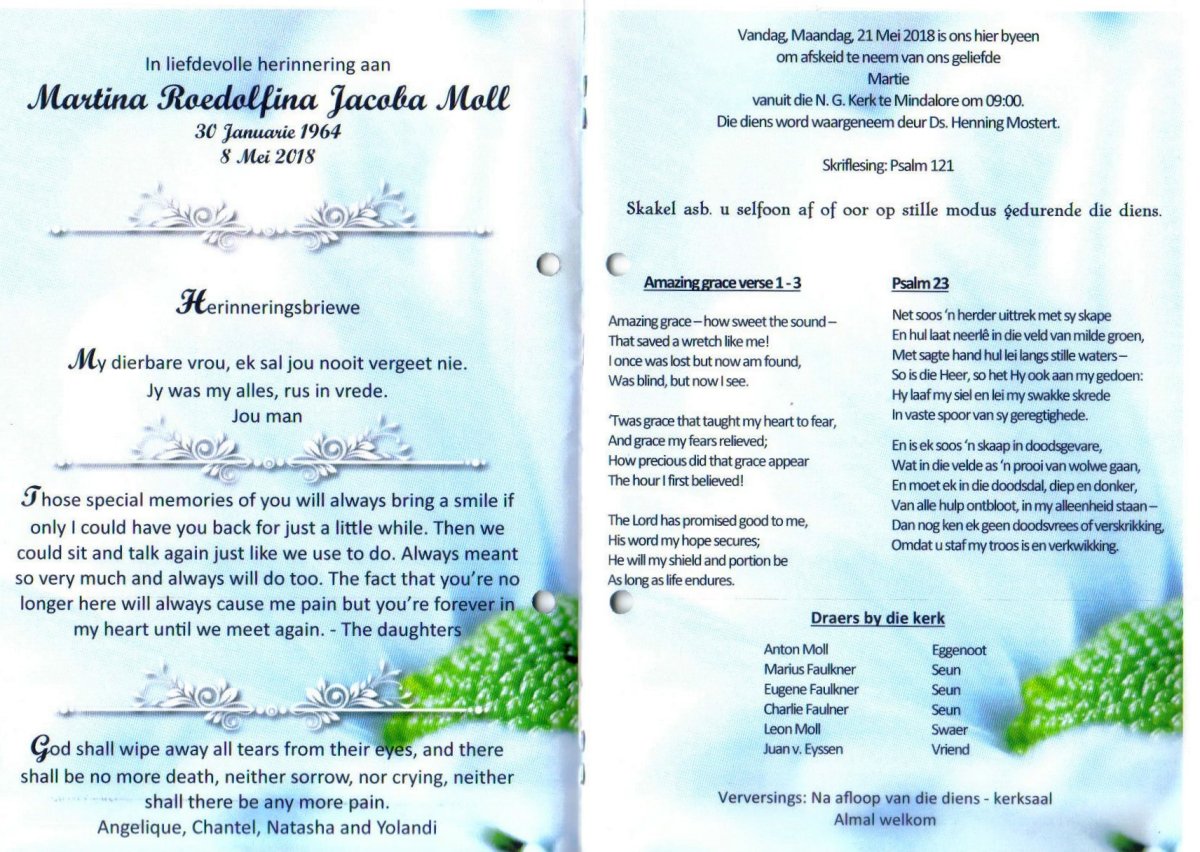 In liefdevolle herinnering aan
Martina Roedolfina Jacoba Moll
30 Januarie 1964
8 Mei 2018
Herinneringsbriewe
My dierbare vrou, ek sal jou nooit vergeet nie.
Jy was my alles, rus in vrede.
Jou man
Those special memories of you will always bring a smile if
only I could have you back for just a little while. Then we
could sit and talk again just like we use to do. Always meant
so very much and always will do too. The fact that you're no
longer here will always cause me pain but you're forever in
my heart until we meet again. - The daughters
God shall wipe away all tears from their eyes, and there
shall be no more death, neither sorrow, nor crying, neither
shall there be any more pain.
Angelique, Chantel, Natasha and Yolandi
Vandag, Maandag, 21 Mei 2018 is ons hier byeen
om afskeid te neem van ons geliefde
Martie
vanuit die N. G. Kerk te Mindalore om 09:00.
Die diens word waargeneem deur Ds. Henning Mostert.
Skriflesing: Psalm 121
Skakel asb. u selfoon af of oor op stille modus gedurende die diens.
Amazing grace verse 1 - 3
Amazing grace – how sweet the sound –
That saved a wretch like me!
I once was lost but now am found,
Was blind, but now I see.
'Twas grace that taught my heart to fear,
And grace my fears relieved;
How precious did that grace appear
The hour I first believed!
The Lord has promised good to me,
His word my hope secures;
He will my shield and portion be
As long as life endures.
Psalm 23
Net soos 'n herder uittrek met sy skape
En hul laat neerlê in die veld van milde groen,
Met sagte hand hul lei langs stille waters –
So is die Heer, so het Hy ook aan my gedoen:
Hy laaf my siel en lei my swakke skrede
In vaste spoor van sy geregtighede.
En is ek soos 'n skaap in doodsgevare,
Wat in die velde as 'n prooi van wolwe gaan,
En moet ek in die doodsdal, diep en donker,
Van alle hulp ontbloot, in my alleenheid staan –
Dan nog ken ek geen doodsvrees of verskrikking,
Omdat u staf my troos is en verkwikking.
Draers by die kerk
Anton Moll Eggenoot
Marius Faulkner Seun
Eugene Faulkner Seun
Charlie Faulner Seun
Leon Moll Swaer
Juan v. Eyssen Vriend
Verversings: Na afloop van die diens - kerksaal
Almal welkom